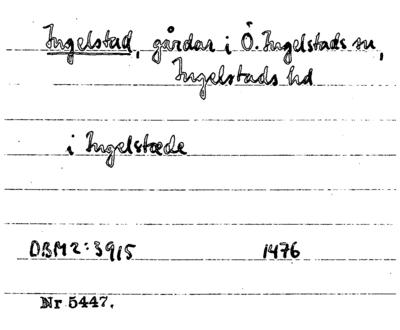 Ingelstad, gårdar i Ö. Ingelstads sn,
Ingelstads hd
i Ingelstæde
DBM 2:3915 1476
Nr 5447.